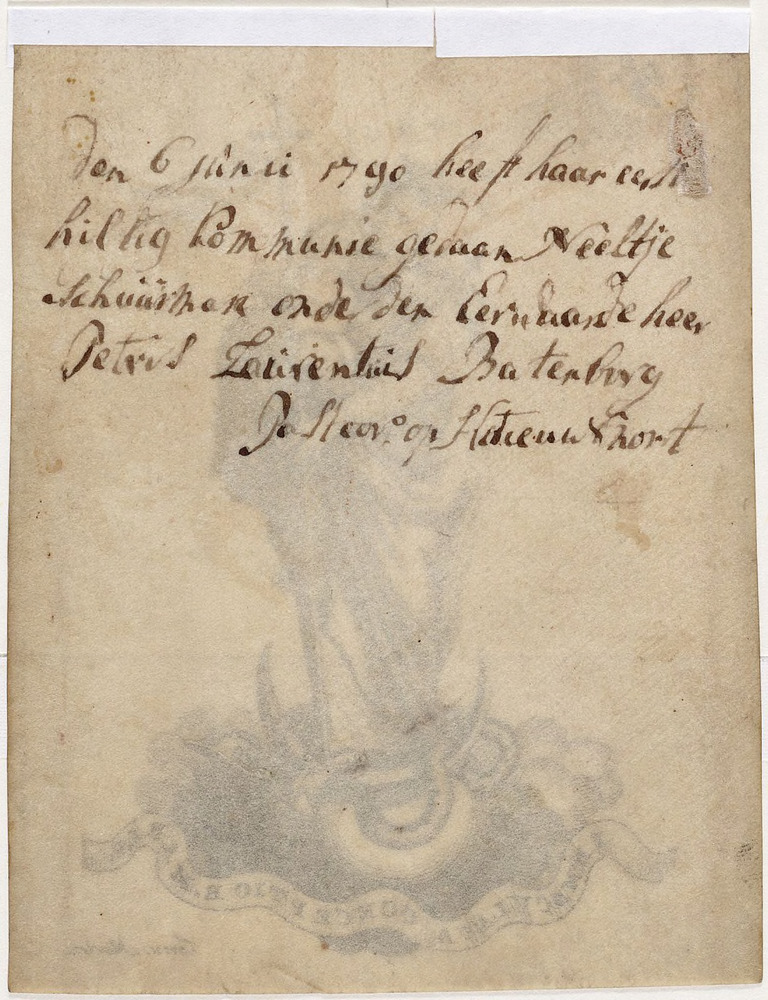 den 6 Junii 1790 heeft haar eerst
hiltig kommunie gedaan Neeltje
Schuürman onder den Eerwaarde heer
Petrus Laurentuis Batenburg
Pasteoor op